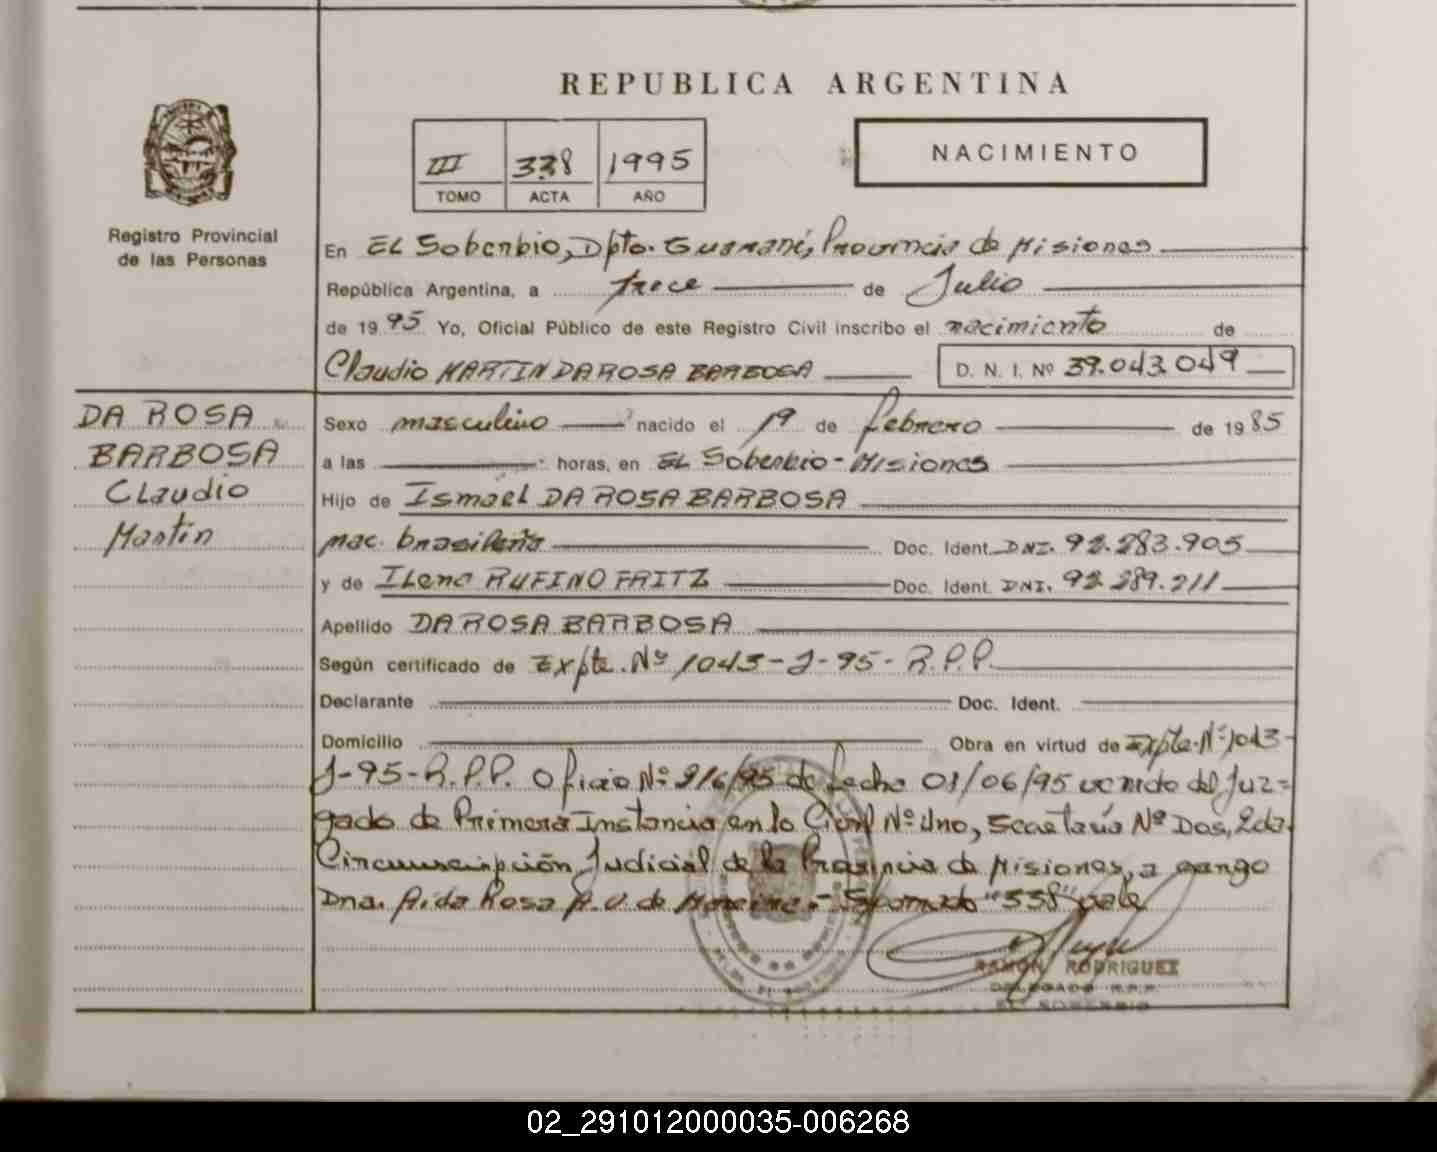 REPUBLICA ARGENTINA
III 338 1995
TOMO ACTA AÑO
NACIMIENTO
Registro Provincial
de las Personas
En EL Soberbio, Dpto. Guaraní, Provincia de Misiones
República Argentina, a trece de Julio
de 1995 Yo, Oficial Público de este Registro Civil inscribo el nacimiento de
Claudio MARTIN DA ROSA BARBOSA D. N. I. Nº 39.043.049
DA ROSA
BARBOSA
Claudio
Martin
Sexo masculino nacido el 19 de febrero de 1985
a las horas, en EL Soberbio - Misiones
Hijo de Ismael DA ROSA BARBOSA
nac. brasileña Doc. Ident. DNI. 92.283.905
y de ILena RUFINO FRITZ Doc. Ident. DNI. 92.289.211
Apellido DA ROSA BARBOSA
Según certificado de Expte. Nº 1043-J-95-R.P.P.
Declarante Doc. Ident.
Domicilio Obra en virtud de Expte. Nº 1043-
J-95-R.P.P. Oficio Nº 916/95 de fecha 01/06/95 venido del Juz=
gado de Primera Instancia en lo Civil Nº Uno, Secretaría Nº Dos, 2da.
Circunscripción Judicial de la Provincia de Misiones, a cargo
Dna. Aida Rosa A. V. de Moreira.- "338" vale
RAMON RODRIGUEZ
DELEGADO R.P.P.
EL SOBERBIO
02_291012000035-006268